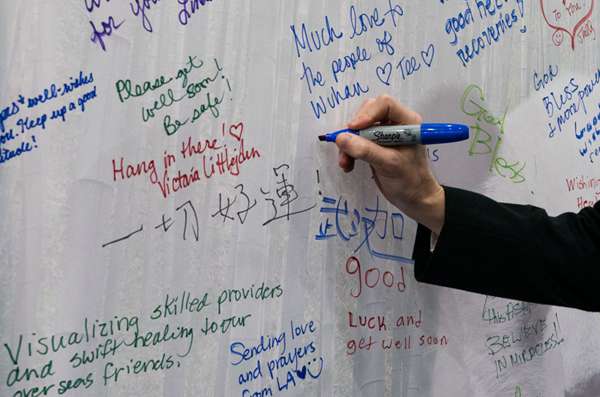 good health
recoveries!
To you,
Much love to
the people of
Wuhan ♡ Tee ♡
Please get
well soon!
Be safe!
& well-wishes
you. Keep up a good
Hang in there! ♡
Victoria Littlejohn
一切好運!
武汉加
Sharpie
God
Bless
God
Bless
+ more power
Wishing
good
Luck and
get well soon
BELIEVE
IN MIRACLES!
Visualizing skilled providers
and swift healing to our
overseas friends.
Sending love
and prayers
from LA ♡